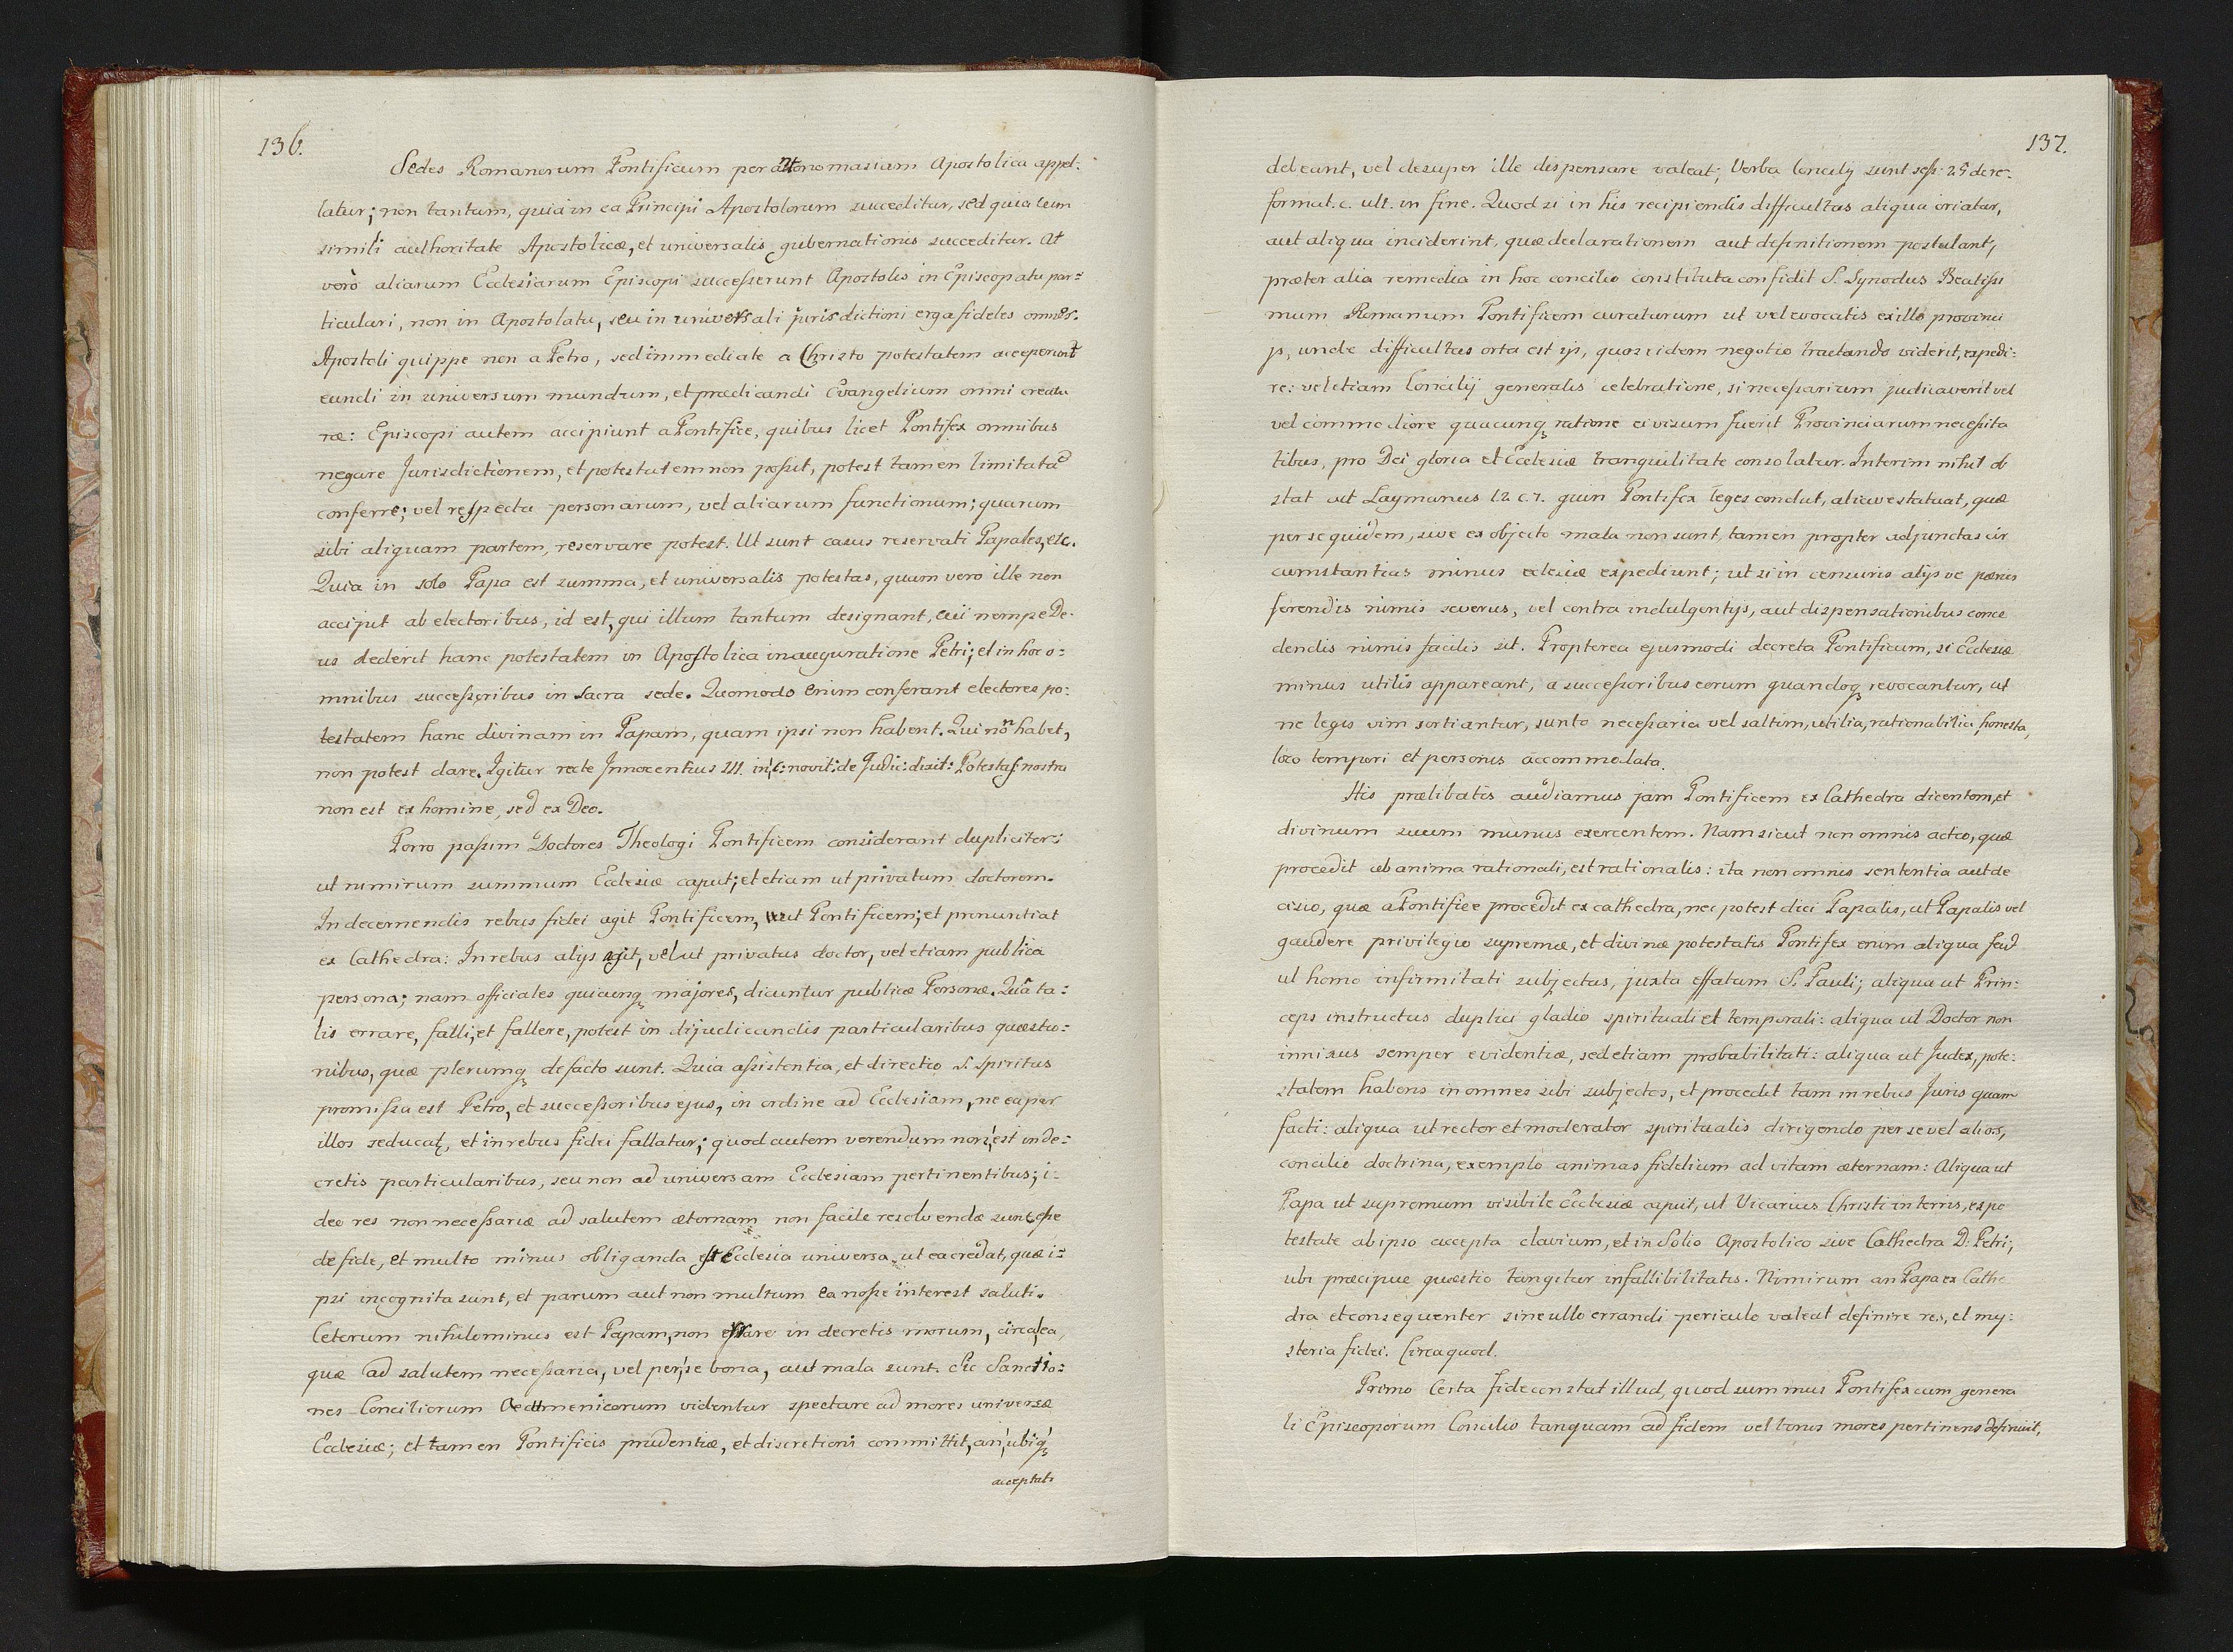 136.
Sedes Romanorum Pontificum per antonomasiam Apostolica appel:
latur; non tantum, quia in ea Principi Apostolorum succeditur, sed quia cum
simili authoritate Apostolicæ, et universalis gubernationis succeditur. At
verò aliarum Ecclesiarum Episcopi successerunt Apostolis in Episcopatu par:
ticulari, non in Apostolatu, seu in universali jurisdictioni erga fideles omnes.
Apostoli quippe non a Petro, sed immediate a Christo potestatem acceperunt
eundi in universum mundum, et prædicandi Evangelium omni creatu
ræ: Episcopi autem accipiunt a Pontifice, quibus licet Pontifex omnibus
negare Jurisdictionem, et potestatem non possit, potest tamen limitatã
conferre; vel respectu personarum, vel aliarum functionum; quarum
sibi aliquam partem, reservare potest. Ut sunt casus reservati Papales, etc.
Quia in solo Papa est summa, et universalis potestas, quam vero ille non
accipit ab electoribus, id est, qui illum tantum designant, cui nempe De:
us dederit hanc potestatem in Apostolica inauguratione Petri; et in hoc o:
mnibus successoribus in sacra sede. Quomodo enim conferant electores po:
testatem hanc divinam in Papam, quam ipsi non habent. Qui non habet,
non potest dare. Igitur recte Innocentius III. in c: novit: de Judic: dixit: Potestas nostra
non est ex homine, sed ex Deo.
Porro passim Doctores Theologi Pontificem considerant dupliciter:
ut nimirum summum Ecclesiæ caput; et etiam ut privatum doctorem.
In decernendis rebus fidei agit Pontificem, ut Pontificem; et pronuntiat
ex Cathedra: In rebus alijs agit, vel ut privatus doctor, vel etiam publica
persona; nam officiales quicunq majores, dicuntur publicæ Personæ. Quã ta:
lis errare, falli, et fallere, potest in dijudicandis particularibus quæstio:
nibus, quæ plerumq de facto sunt. Quia assistentia, et directio S. Spiritus
promissa est Petro, et successoribus ejus, in ordine ad Ecclesiam, ne ea per
illos seducat, et in rebus fidei fallatur; quod autem verendum non est in de:
cretis particularibus, seu non ad universam Ecclesiam pertinentibus; i:
deo res non necessariæ ad salutem æternam non facile resolvendæ sunt esse
de fide, et multo minus obliganda est Ecclesia universa, ut ea credat, quæ i:
psi incognita sunt, et parum aut non multum ea nosse interest saluti.
Ceterum nihilominus est Papam, non errare in decretis morum, circa ea,
quæ ad salutem necessaria, vel per se bona, aut mala sunt. Sic Sanctio:
nes Conciliorum Oecumenicorum videntur spectare ad mores universæ
Ecclesiæ; et tamen Pontificis prudentiæ, et discretioni committit, an, ubiq
acceptati
137.
debeant, vel desuper ille dispensare valeat; Verba Concilij sunt sess: 25 de re-
format. c. ult. in fine. Quod si in his recipiendis difficultas aliqua oriatur,
aut aliqua inciderint, quæ declarationem aut definitionem postulant,
præter alia remedia in hoc concilio constituta confidit S. Synodus Beatissi
mum Romanum Pontificem curaturum ut vel evocatis ex illa provinci
js, unde difficultas orta est ijs, quos eidem negotio tractando viderit, expedi:
re: vel etiam Concilij generalis celebratione, si necessarium judicaverit vel
vel commodiore quacunq ratione ei visum fuerit Provinciarum necessita
tibus, pro Dei gloria et Ecclesiæ tranquilitate consolatur. Interim nihil ob
stat ait Laymanus l. 2. c. 7. quin Pontifex leges condat, aliave statuat, quæ
per se quidem, sive ex objecto mala non sunt, tamen propter adjunctas cir
cumstantias minus ecclesiæ expediunt; ut si in censuris alijs ve pœnis
ferendis nimis severus, vel contra indulgentijs, aut dispensationibus conce
dendis nimis facilis sit. Propterea ejusmodi decreta Pontificum, si Ecclesiæ
minus utilis appareant, a successoribus eorum quandoq revocantur, ut
ne legis vim sortiantur, sunto necessaria vel saltim, utilia, rationabilia, honesta,
loco tempori et personis accommodata.
His prælibatis audiamus jam Pontificem ex Cathedra dicentem, et
divinum suum munus exercentem. Nam sicut non omnis actio, quæ
procedit ab anima rationali, est rationalis: ita non omnis sententia aut de
cisio, quæ a Pontifice procedit ex cathedra, nec potest dici Papalis, ut Papalis vel
gaudere privilegio supremæ, et divinæ potestatis Pontifex enim aliqua facit
ut homo infirmitati subjectus, juxta effatum S. Pauli; aliqua ut Prin:
ceps instructus duplici gladio spirituali et temporali: aliqua ut Doctor non
innixus semper evidentiæ, sed etiam probabilitati: aliqua ut Judex, pote:
statem habens in omnes sibi subjectos, et procedit tam in rebus Juris quam
facti: aliqua ut rector et moderator spiritualis dirigendo per se vel alios,
concilio doctrina, exemplo animas fidelium ad vitam æternam: Aliqua ut
Papa ut supremum visibile Ecclesiæ caput, ut Vicarius Christi in terris, ex po
testate ab ipso accepta clavium, et in Solio Apostolico sive Cathedra D. Petri;
ubi præcipue quæstio tangitur infallibilitatis. Nimirum an Papa ex Cathe
dra et consequenter sine ullo errandi periculo valeat definire res, et my:
steria fidei. Circa quod.
Primo Certa fide constat illud, quod summus Pontifex cum genera
li Episcoporum Concilio tanquam ad fidem vel bonos mores pertinens definivit,